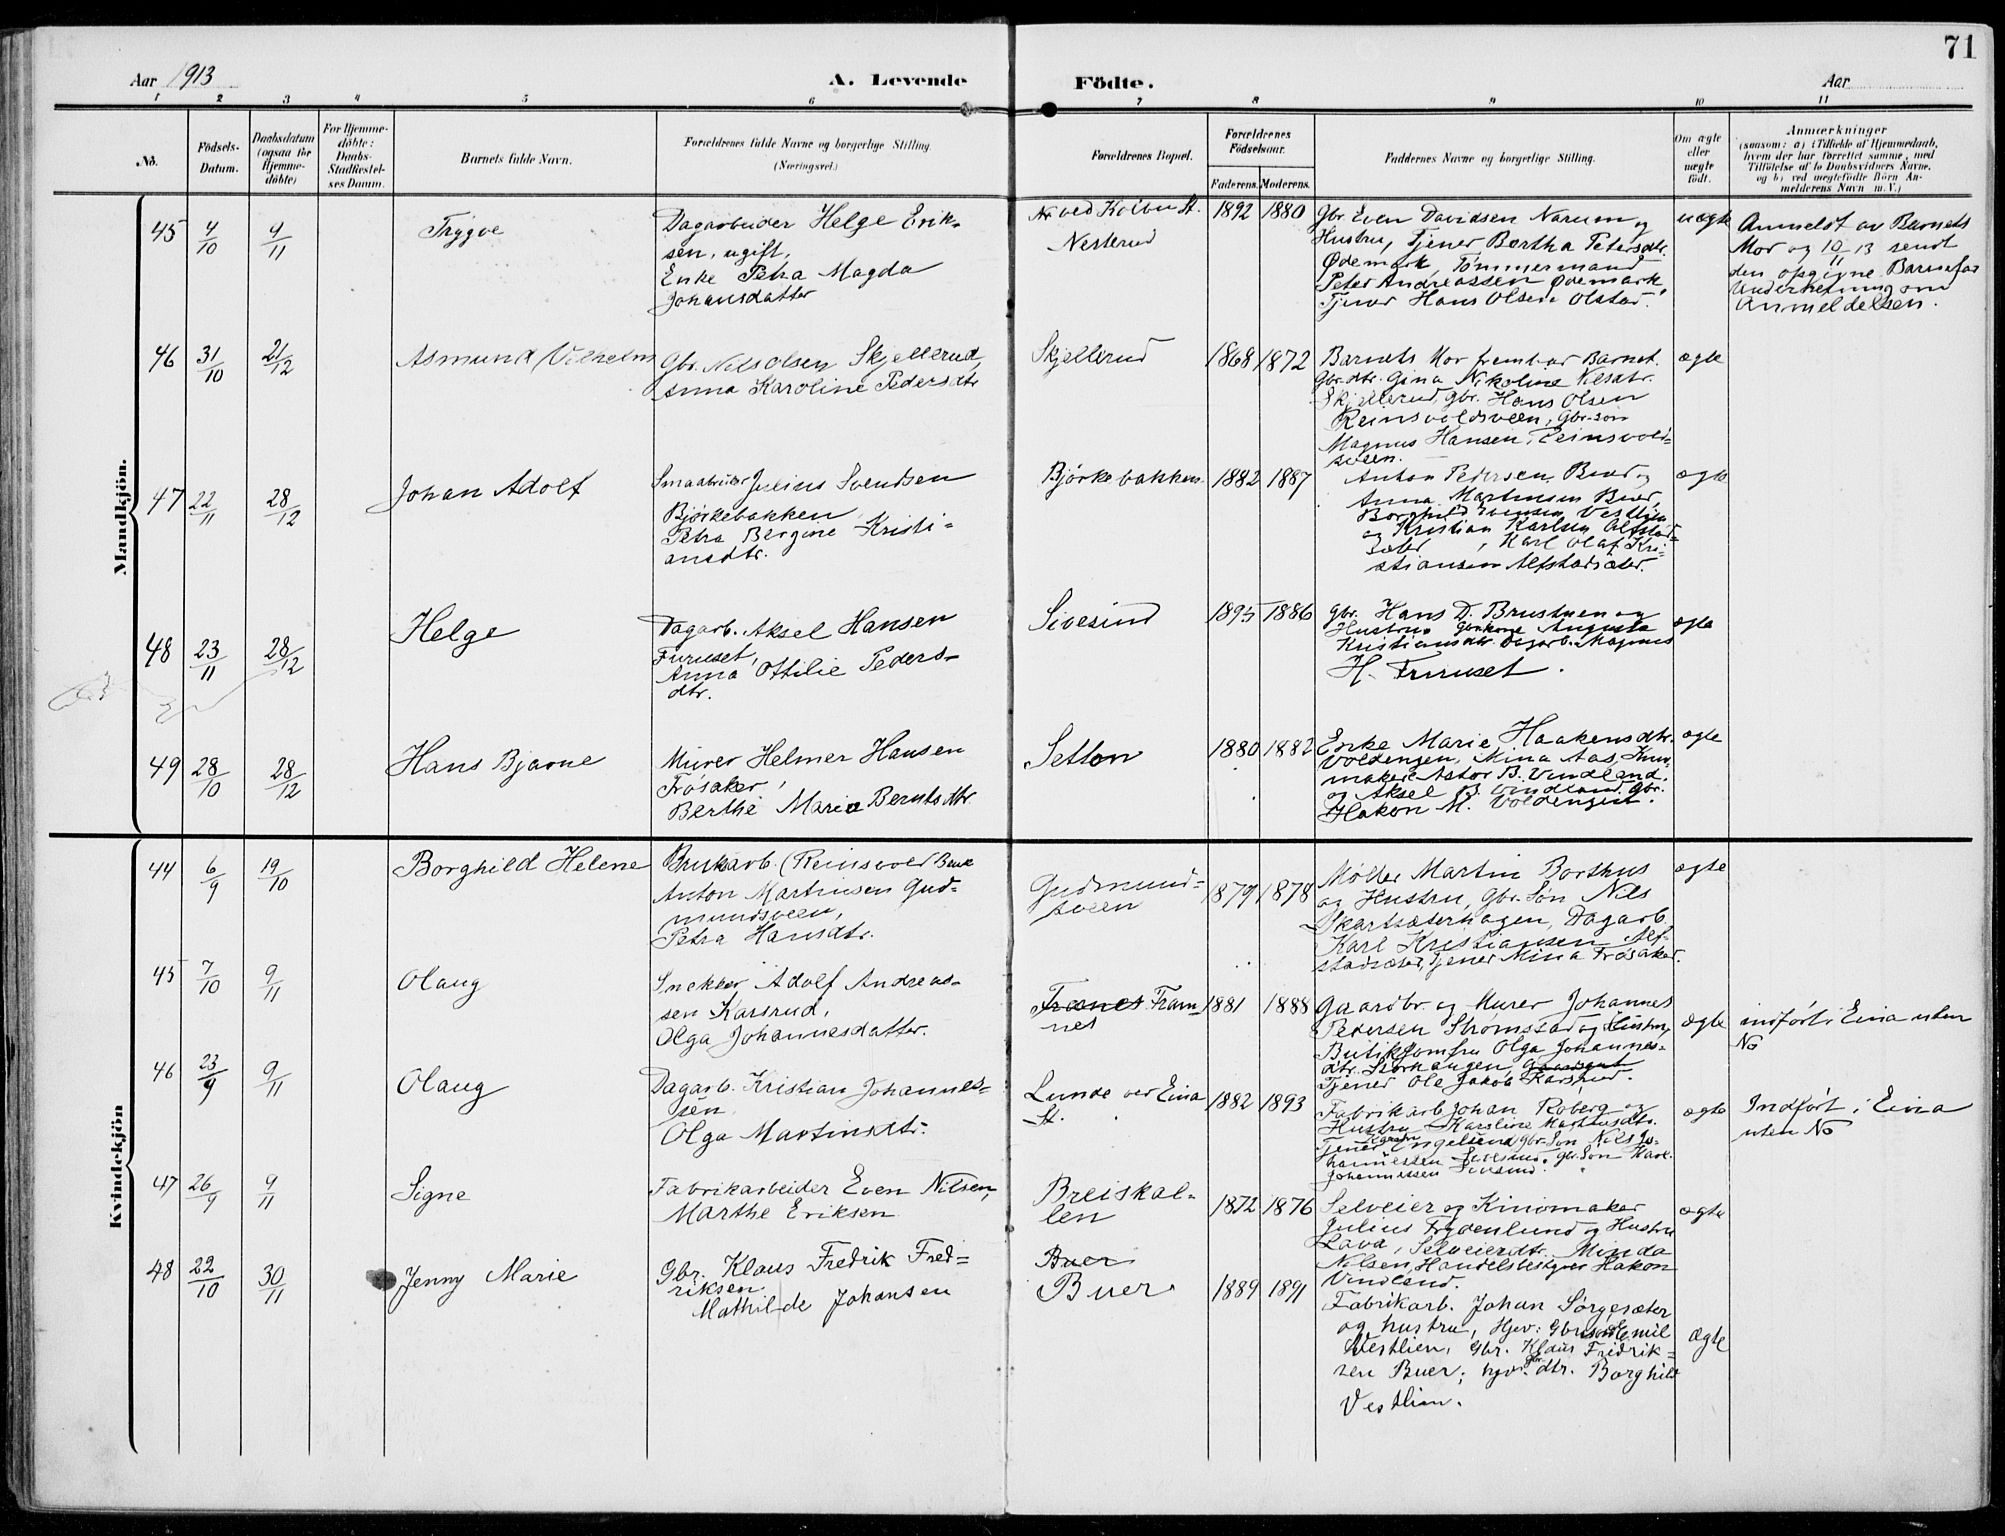 71
Aar 1913
A. Levende Födte.
Aar
1 2 3 4 5 6 7 8 9 10 11
No.
Födsels-
Datum.
Daabsdatum
(ogsaa for
Hjemme-
döbte)
For Hjemme-
döbte:
Daabs-
Stadfæstel-
ses Datum.
Barnets fulde Navn.
Forældrenes fulde Navne og borgerlige Stilling
(Næringsvei.)
Forældrenes Bopæl.
Forældrenes
Födselsaar.
Faderens. Moderens.
Faddernes Navne og borgerlige Stilling.
Om ægte
eller
uægte
født.
Anmærkninger
(saasom: a) i Tilfælde af Hjemmedaab,
hvem der har forrettet samme, med
Tilföielse af to Daabsvidners Navne.
og b) ved uægtefödte Börn An-
melderens Navn m. V.)
Mandkjön.
45 4/10 9/11
Trygve
Dagarbeider Helge Erik-
sen, ugift,
Enke Petra Magda
Johansdatter
ved Kolbu St.
Nesterud
1892 1880
Gbr. Even Davidsen Narum og
Hustru, Tjener Bertha Petersdtr.
Ødemark, Tømmermand
Peter Andreassen Ødemark,
Tjener Hans Olsen Olstad.
uægte
Anmeldt av Barnets
Mor og 10/11 13 sendt
den opgivne Barnefar
Underretning om
Anmeldelsen.
46 31/10 21/12
Asmund Vilhelm
Gbr. Nils Olsen Skjellerud,
Anna Karoline Pedersdtr
Skjellerud
1868 1872
Barnets Mor fremb. ar Barnet.
Gbr.dtr. Gina Nikoline Nilsdtr.
Skjellerud, Gbr. Hans Olsen
Reinsvoldsveen, Gbr.søn
Magnus Hansen, Reinsvold-
sveen.
ægte
47 22/11 28/12
Johan Adolf
Smaabruker Julius Svendsen
Bjørkebakken,
Petra Bergine Kristi-
ansdtr.
Bjørkebakken
1882 1887
Anton Pedersen Buer og
Anna Martinsen Buer,
Borghild Svensen Vestlien
og Kristian Karlsen Alfstad-
sæter, Karl Olaf Kri-
stiansen Alfstadsæter.
ægte
48 23/11 28/12
Helge
Dagarb. Aksel Hansen
Furuset,
Anna Ottilie Peders-
dtr.
Sivesind
1895 1886
Gbr. Hans D. Brustuen og
Hustru, Augusta
Kristiansdtr. Dagarb. Magnus
H. Furuset.
ægte
49 28/10 28/12
Hans Bjarne
Murer Helmer Hansen
Frøsaker,
Berthe Marie Berntsdtr.
Setton
1880 1882
Enke Marie Haakensdtr.
Voldengen, Mina Aas,
maker Astor B. Vindland.
og Aksel B. Vindland, Gbr.
Hakon M. Voldengen.
ægte
Kvindekjön
44 6/9 19/10
Borghild Helene
Brukarb. (Reinsvold Bruk
Anton Martinsen Gud-
mundsveen,
Petra Hansdtr.
Gudmund-
sveen
1879 1878
Møller Martin Borthus
og Hustru, Gbr. Søn Nils
Skartsæterhagen, Dagarb.
Karl Kristiansen Alf-
stadsæter, Tjener Mina Frøsaker.
ægte
45 7/10 9/11
Olaug
Snekker Adolf Andreas-
sen Karsrud,
Olga Johannesdatter.
Framnes Fram-
nes
1881 1888
Gaardbr. og Murer Johannes
Pedersen Strømstad og Hustru,
Butikjomfru Olga Johannes-
dtr. Storhaugen,
Tjener Ole Jakob Karsrud.
ægte
indført i Eina uten
No
46 23/9 9/11
Olaug
Dagarb. Kristian Johannes-
sen
Olga Martinsdtr.
Lunde ved Eina
St.
1882 1893
Fabrikarb. Johan Roberg og
Hustru Karoline Mathiasdtr.
Tjener Engelsen, Gbr. Søn Nils Jo-
hannessen Sivesind, Gbr. Søn Karl
Johannessen Sivesind.
ægte
Indført i Eina
uten No
47 26/9 9/11
Signe
Fabrikarbeider Even Nilsen,
Marthe Eriksen
Breiskal-
len
1872 1876
Selveier og Kinomaker
Julius Frydenlund og Hustru
Lava, Selveierdtr. Minda
Nilsen, Handelsbestyrer Hakon
Vindland.
ægte
48 22/10 30/11
Jenny Marie
Gbr. Klaus Fredrik Fred-
riksen.
Mathilde Johansen
Buer
Buer
1889 1891
Fabrikarb. Johan Sørgesæter
og hustru, Hjev: Gbrsøn Emil
Vestlien, Gbr. Klaus Fredrik-
sen Buer; hjv. gbr. dtr. Borghild
Vestlien.
ægte